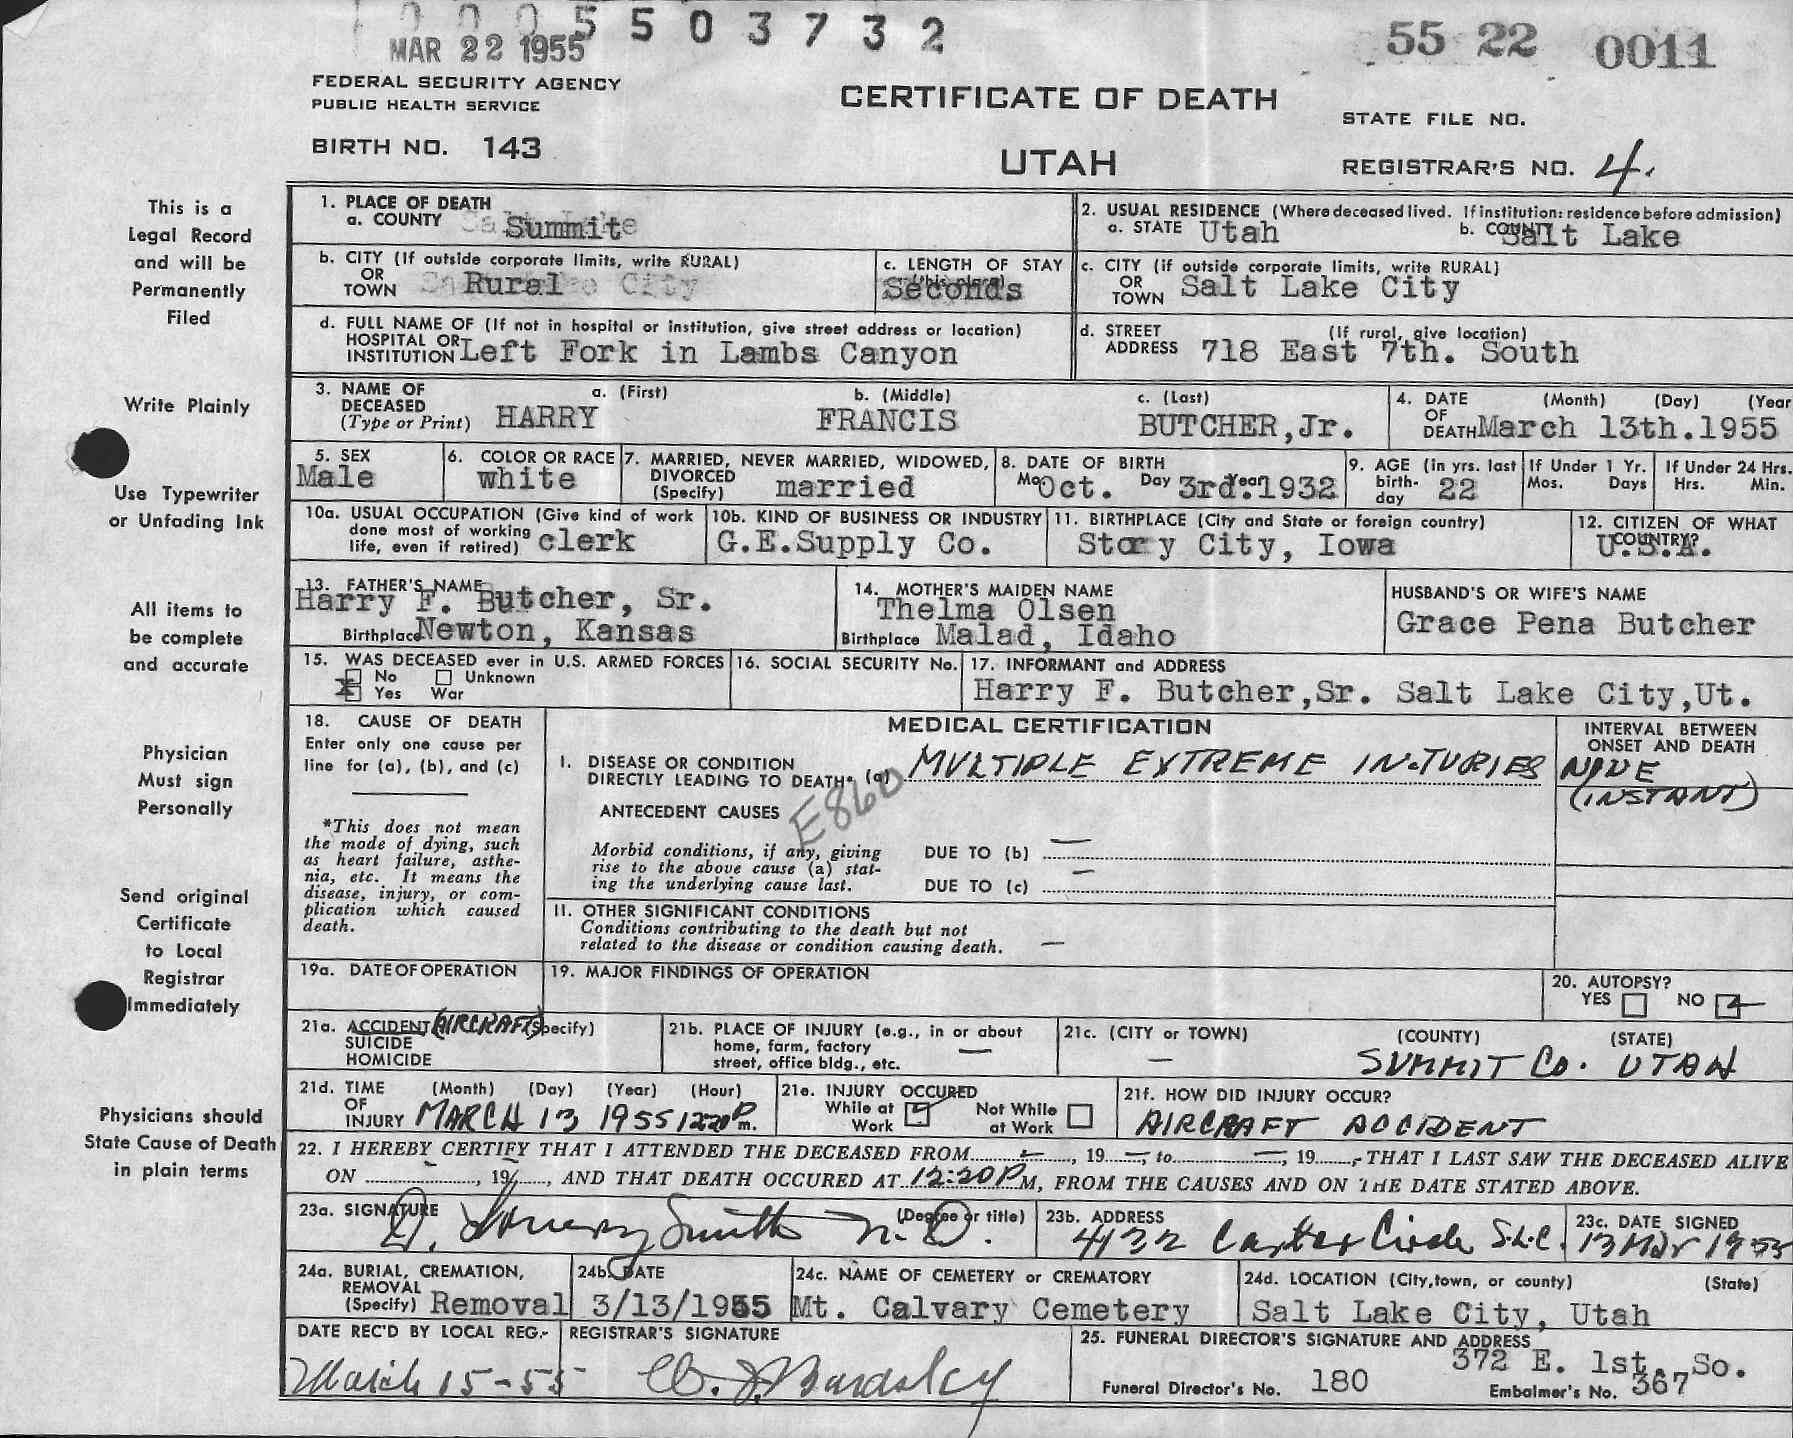 0005503732
MAR 22 1955
55 22 0011
FEDERAL SECURITY AGENCY
PUBLIC HEALTH SERVICE
CERTIFICATE OF DEATH
STATE FILE NO.
BIRTH NO. 143
UTAH
REGISTRAR'S NO. 4.
This is a
Legal Record
and will be
Permanently
Filed
Write Plainly
Use Typewriter
or Unfading Ink
All items to
be complete
and accurate
Physician
Must sign
Personally
Send original
Certificate
to Local
Registrar
Immediately
Physicians should
State Cause of Death
in plain terms
1. PLACE OF DEATH
a. COUNTY Summit
2. USUAL RESIDENCE (Where deceased lived. If institution: residence before admission)
a. STATE Utah b. COUNTY Salt Lake
b. CITY (If outside corporate limits, write RURAL)
OR
TOWN Rural
c. LENGTH OF STAY
(this place)
Seconds
c. CITY (if outside corporate limits, write RURAL)
OR
TOWN Salt Lake City
d. FULL NAME OF (If not in hospital or institution, give street address or location)
HOSPITAL OR
INSTITUTION Left Fork in Lambs Canyon
d. STREET (If rural, give location)
ADDRESS 718 East 7th. South
3. NAME OF a. (First) b. (Middle) c. (Last)
DECEASED
(Type or Print) HARRY FRANCIS BUTCHER, Jr.
4. DATE (Month) (Day) (Year
OF
DEATH March 13th. 1955
5. SEX
Male
6. COLOR OR RACE
white
7. MARRIED, NEVER MARRIED, WIDOWED,
DIVORCED
(Specify) married
8. DATE OF BIRTH
Mo Oct. Day 3rd. Year 1932
9. AGE (in yrs. last
birth-
day 22
If Under 1 Yr.
Mos. Days
If Under 24 Hrs.
Hrs. Min.
10a. USUAL OCCUPATION (Give kind of work
done most of working
life, even if retired) clerk
10b. KIND OF BUSINESS OR INDUSTRY
G.E.Supply Co.
11. BIRTHPLACE (City and State or foreign country)
Story City, Iowa
12. CITIZEN OF WHAT
COUNTRY?
U.S.A.
13. FATHER'S NAME
Harry F. Butcher, Sr.
Birthplace Newton, Kansas
14. MOTHER'S MAIDEN NAME
Thelma Olsen
Birthplace Malad, Idaho
HUSBAND'S OR WIFE'S NAME
Grace Pena Butcher
15. WAS DECEASED ever in U.S. ARMED FORCES
No Unknown
x Yes War
16. SOCIAL SECURITY No.
17. INFORMANT and ADDRESS
Harry F. Butcher,Sr. Salt Lake City,Ut.
18. CAUSE OF DEATH
Enter only one cause per
line for (a), (b), and (c)
*This does not mean
the mode of dying, such
as heart failure, asthe-
nia, etc. It means the
disease, injury, or com-
plication which caused
death.
MEDICAL CERTIFICATION
INTERVAL BETWEEN
ONSET AND DEATH
I. DISEASE OR CONDITION
DIRECTLY LEADING TO DEATH* (a) MULTIPLE EXTREME INJURIES
NONE
(INSTANT)
E860
ANTECEDENT CAUSES
Morbid conditions, if any, giving
rise to the above cause (a) stat-
ing the underlying cause last.
DUE TO (b) —
DUE TO (c) —
II. OTHER SIGNIFICANT CONDITIONS
Conditions contributing to the death but not
related to the disease or condition causing death. —
19a. DATE OF OPERATION
19. MAJOR FINDINGS OF OPERATION
20. AUTOPSY?
YES NO
21a. ACCIDENT (AIRCRAFT) (Specify)
SUICIDE
HOMICIDE
21b. PLACE OF INJURY (e.g., in or about
home, farm, factory
street, office bldg., etc. —
21c. (CITY or TOWN) (COUNTY) (STATE)
— SUMMIT Co. UTAH
21d. TIME (Month) (Day) (Year) (Hour)
OF
INJURY MARCH 13 1955 12:20 P m.
21e. INJURY OCCURED
While at
Work
Not While
at Work
21f. HOW DID INJURY OCCUR?
AIRCRAFT ACCIDENT
22. I HEREBY CERTIFY THAT I ATTENDED THE DECEASED FROM —, 19 —, to —, 19 , THAT I LAST SAW THE DECEASED ALIVE
ON , 19 , AND THAT DEATH OCCURED AT 12:20 P M, FROM THE CAUSES AND ON THE DATE STATED ABOVE.
23a. SIGNATURE (Degree or title)
Smith M.D.
23b. ADDRESS
4132 Carter Circle S.L.C.
23c. DATE SIGNED
13 Mar 1955
24a. BURIAL, CREMATION,
REMOVAL
(Specify) Removal
24b. DATE
3/13/1955
24c. NAME OF CEMETERY or CREMATORY
Mt. Calvary Cemetery
24d. LOCATION (City, town, or county) (State)
Salt Lake City, Utah
DATE REC'D BY LOCAL REG.-
March 15-55
REGISTRAR'S SIGNATURE
Bardsley
25. FUNERAL DIRECTOR'S SIGNATURE AND ADDRESS
372 E. 1st. So.
Funeral Director's No. 180 Embalmer's No. 367